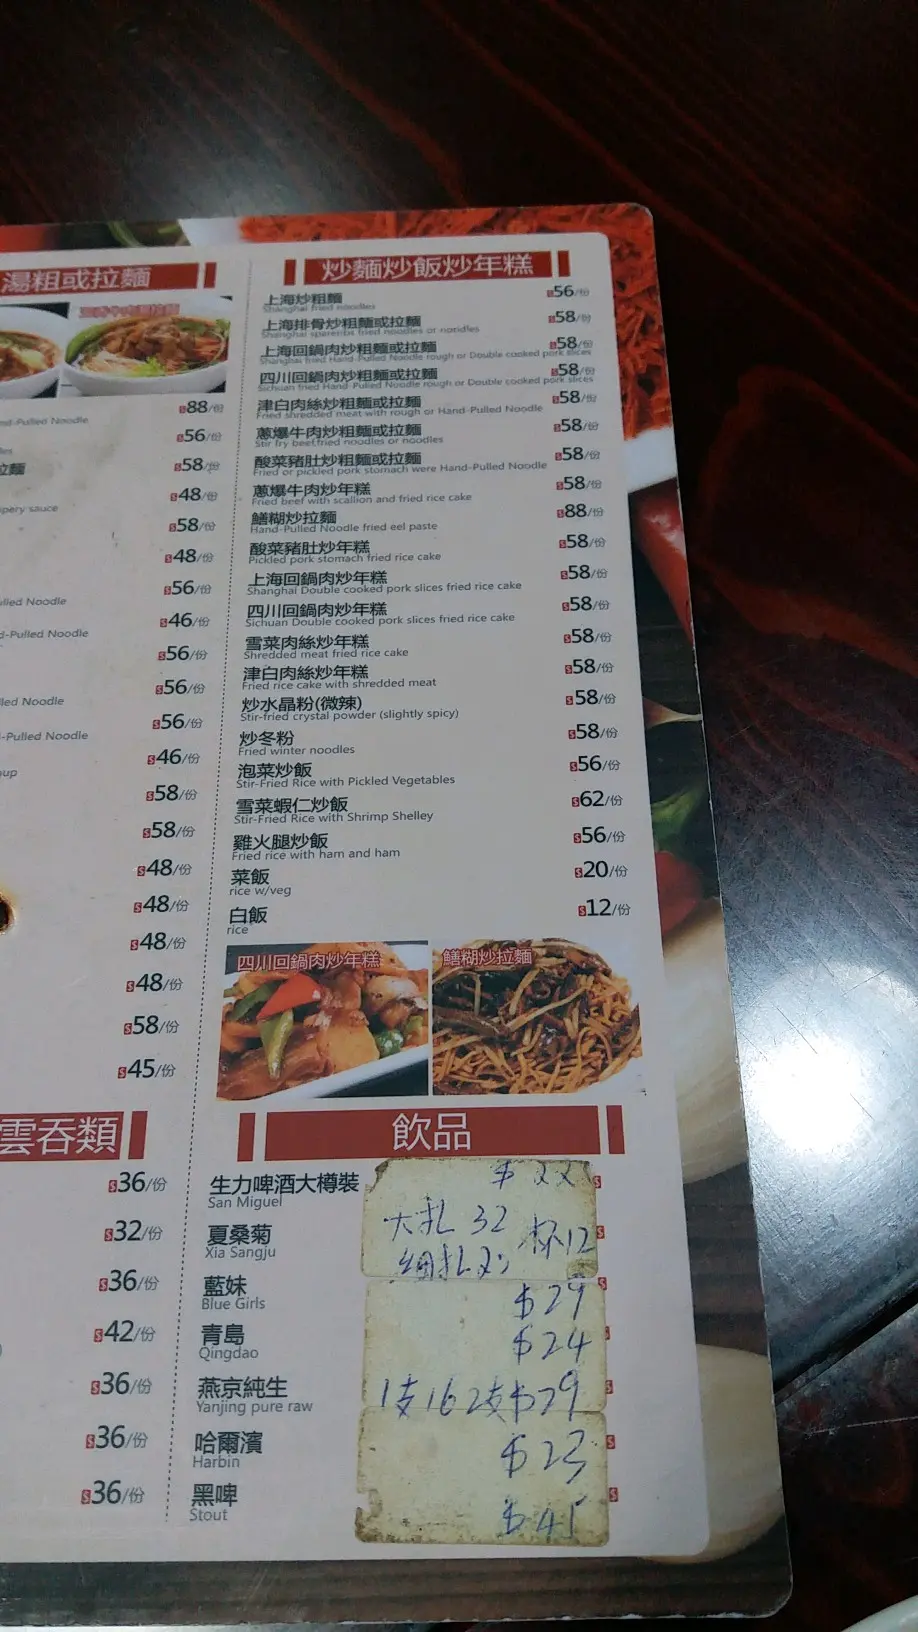 湯粗或拉麵
nd-Pulled Noodle
$88/份
$56/份
拉麵
$58/份
$48/份
pery sauce
$58/份
$48/份
$56/份
ulled Noodle
$46/份
d-Pulled Noodle
$56/份
$56/份
lled Noodle
$56/份
-Pulled Noodle
$46/份
oup
$58/份
$58/份
$48/份
$48/份
$48/份
$48/份
$58/份
$45/份
雲吞類
$36/份
$32/份
$36/份
$42/份
$36/份
$36/份
$36/份
炒麵炒飯炒年糕
上海炒粗麵 $56/份
Shanghai fried noodles
上海排骨炒粗麵或拉麵 $58/份
Shanghai spareribs fried noodles or noodles
上海回鍋肉炒粗麵或拉麵 $58/份
Shanghai fried Hand-Pulled Noodle rough or Double cooked pork slices
四川回鍋肉炒粗麵或拉麵 $58/份
Sichuan fried Hand-Pulled Noodle rough or Double cooked pork slices
津白肉絲炒粗麵或拉麵 $58/份
Fried shredded meat with rough or Hand-Pulled Noodle
蔥爆牛肉炒粗麵或拉麵 $58/份
Stir fry beef,fried noodles or noodles
酸菜豬肚炒粗麵或拉麵 $58/份
Fried or pickled pork stomach were Hand-Pulled Noodle
蔥爆牛肉炒年糕 $58/份
Fried beef with scallion and fried rice cake
鱔糊炒拉麵 $88/份
Hand-Pulled Noodle fried eel paste
酸菜豬肚炒年糕 $58/份
Pickled pork stomach fried rice cake
上海回鍋肉炒年糕 $58/份
Shanghai Double cooked pork slices fried rice cake
四川回鍋肉炒年糕 $58/份
Sichuan Double cooked pork slices fried rice cake
雪菜肉絲炒年糕 $58/份
Shredded meat fried rice cake
津白肉絲炒年糕 $58/份
Fried rice cake with shredded meat
炒水晶粉(微辣) $58/份
Stir-fried crystal powder (slightly spicy)
炒冬粉 $58/份
Fried winter noodles
泡菜炒飯 $56/份
Stir-Fried Rice with Pickled Vegetables
雪菜蝦仁炒飯 $62/份
Stir-Fried Rice with Shrimp Shelley
雞火腿炒飯 $56/份
Fried rice with ham and ham
菜飯 $20/份
rice w/veg
白飯 $12/份
rice
四川回鍋肉炒年糕
鱔糊炒拉麵
飲品
生力啤酒大樽裝 $22
San Miguel
大扎 32
夏桑菊 杯12
Xia Sangju
藍妹 $29
Blue Girls
青島 $24
Qingdao
燕京純生 1支16 2支$29
Yanjing pure raw
哈爾濱 $23
Harbin
黑啤 $45
Stout